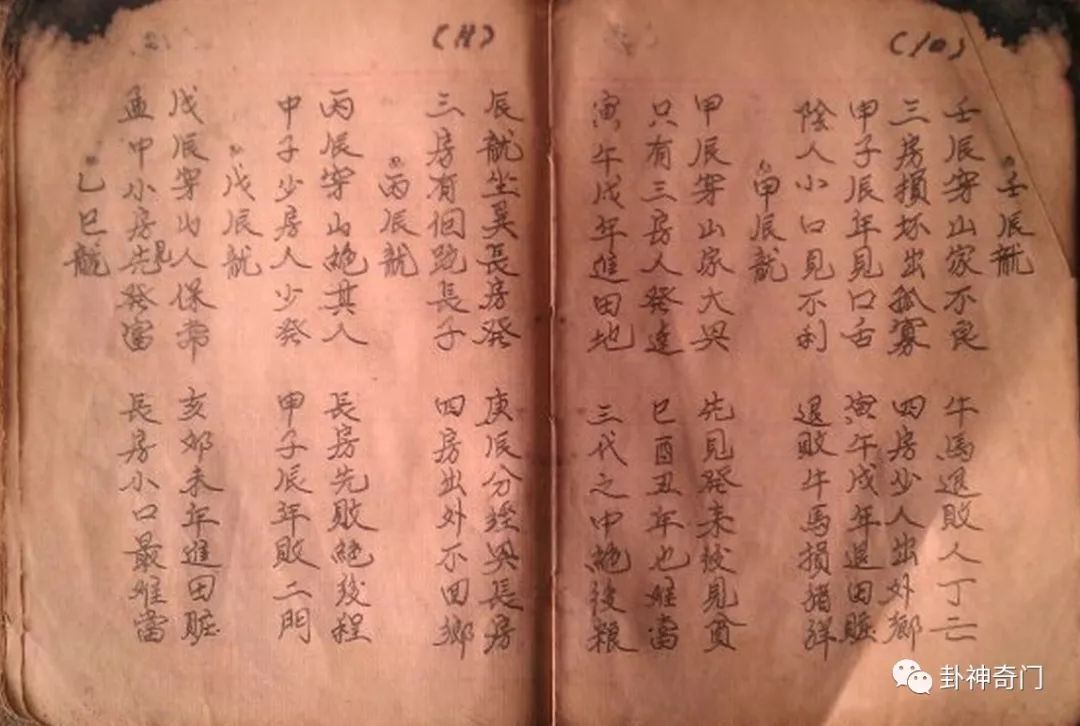 (10)
壬辰龍
壬辰穿山家不良 牛馬退敗人丁亡
三房損坏出孤寡 四房少人出外鄉
甲子辰年見口舌 寅午戌年退田賍
陰人小口見不利 退敗牛馬損猪羊
甲辰龍
甲辰穿山家大興 先見發來後見貧
只有三房人發達 巳酉丑年也难當
寅午戌年進田地 三代之中絶後粮
(11)
辰龍坐異長房發 庚辰分経興長房
三房有個跎長子 四房出外不回鄉
丙辰龍
丙辰穿山絶其人 長房先敗絶後程
申子少房人少發 甲子辰年敗二門
戊辰龍
戊辰穿山人保常 亥卯未年進田賍
孟中小房先見發富 長房小口最难當
乙巳龍
卦神奇门